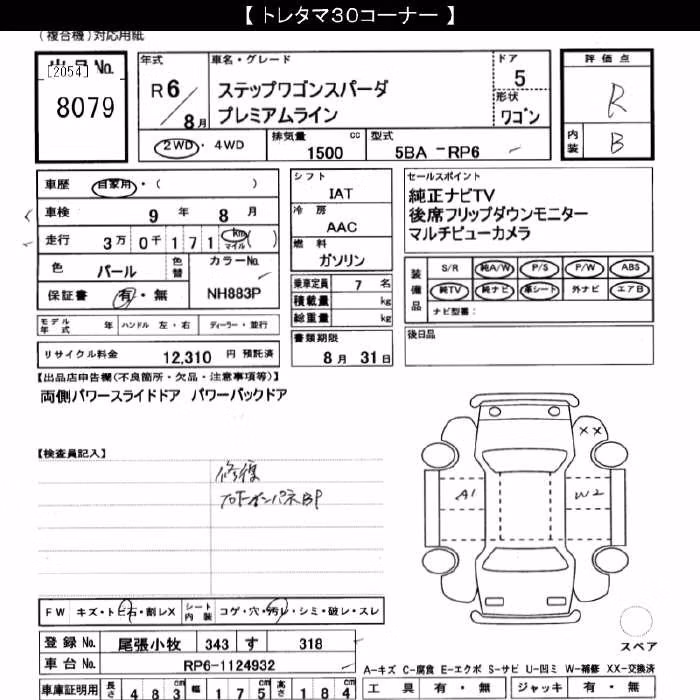 【 トレタマ30コーナー 】
(複合機)対応用紙
出品 No.
[2054]
8079
年式
R6/8月
車名・グレード
ステップワゴンスパーダ
プレミアムライン
ドア
5
形状
ワゴン
評価点
R
内装
B
2WD・4WD
排気量 cc
1500
型式
5BA -RP6
車歴 自家用・( )
車検 9年 8月
走行 3万0千171 km マイル ( )
色 パール 色替
カラーNo.
NH883P
保証書 有・無
モデル年式 年 ハンドル 左・右 ディーラー・並行
リサイクル料金 12,310 円 預託済
シフト
IAT
冷房
AAC
燃料
ガソリン
乗車定員 7 名
積載量 kg
総重量 kg
書類期限
8月 31日
セールスポイント
純正ナビTV
後席フリップダウンモニター
マルチビューカメラ
装備品
S/R 純A/W P/S P/W ABS
純TV 純ナビ 革シート 外ナビ エアB
ナビ型番:
後日品
【出品店申告欄(不良箇所・欠品・注意事項等)】
両側パワースライドドア パワーバックドア
【検査員記入】
修復
XX
A1
W2
FW キズ・トビ石・割レX
シート内装 コゲ・穴・汚レ・シミ・破レ・スレ
登録 No. 尾張小牧 343 す 318
車台 No. RP6-1124932
車庫証明用 長さ 483cm 幅 175cm 高さ 184cm
スペア
A-キズ C-腐食 E-エクボ S-サビ U-凹ミ W-補修 XX-交換済
工具 有・無 ジャッキ 有・無